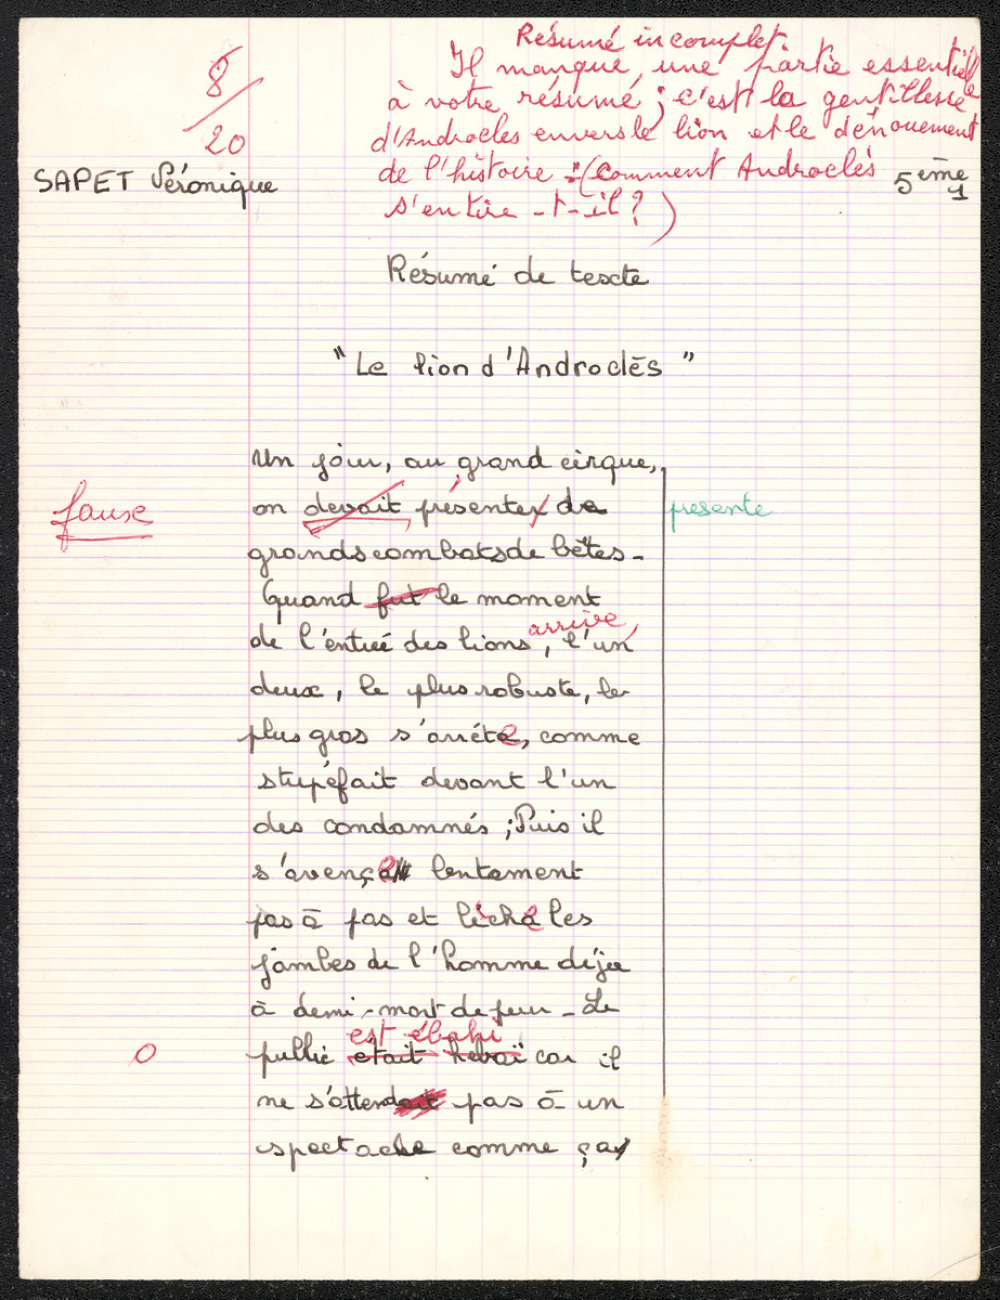 Résumé incomplet.
8/20
Il manque une partie essentielle
à votre résumé ; c'est la gentillesse
d'Androclès envers le lion et le dénouement
de l'histoire : (comment Androclès
s'en tire-t-il ?)
SAPET Véronique
5ème 1
Résumé de texte
"Le lion d'Androclès"
Un jour, au grand cirque,
fause
on devait présenter de
presente
grands combats de bêtes.
Quand fut le moment
arrive
de l'entrée des lions, l'un
deux, le plus robuste, le
plus gros s'arrête, comme
stupéfait devant l'un
des condamnés ; Puis il
s'avença lentement
pas à pas et lécha les
jambes de l'homme déja
à demi-mort de peur. Le
est ébahi
0
public était hebaï car il
ne s'attendait pas à un
spectacle comme ça